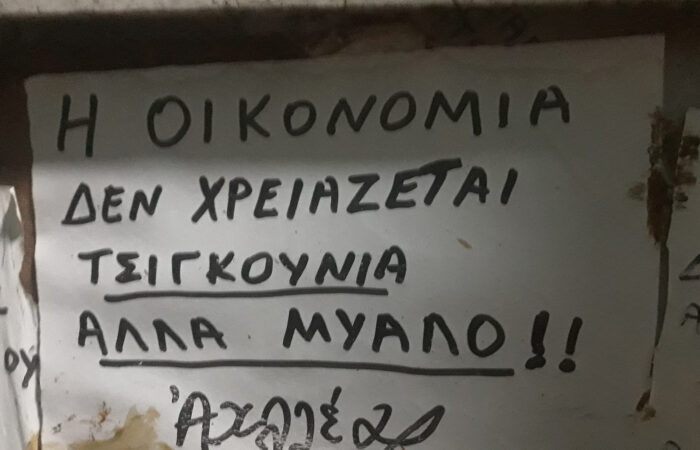 Η ΟΙΚΟΝΟΜΙΑ
ΔΕΝ ΧΡΕΙΑΖΕΤΑΙ
ΤΣΙΓΚΟΥΝΙΑ
ΑΛΛΑ ΜΥΑΛΟ!!